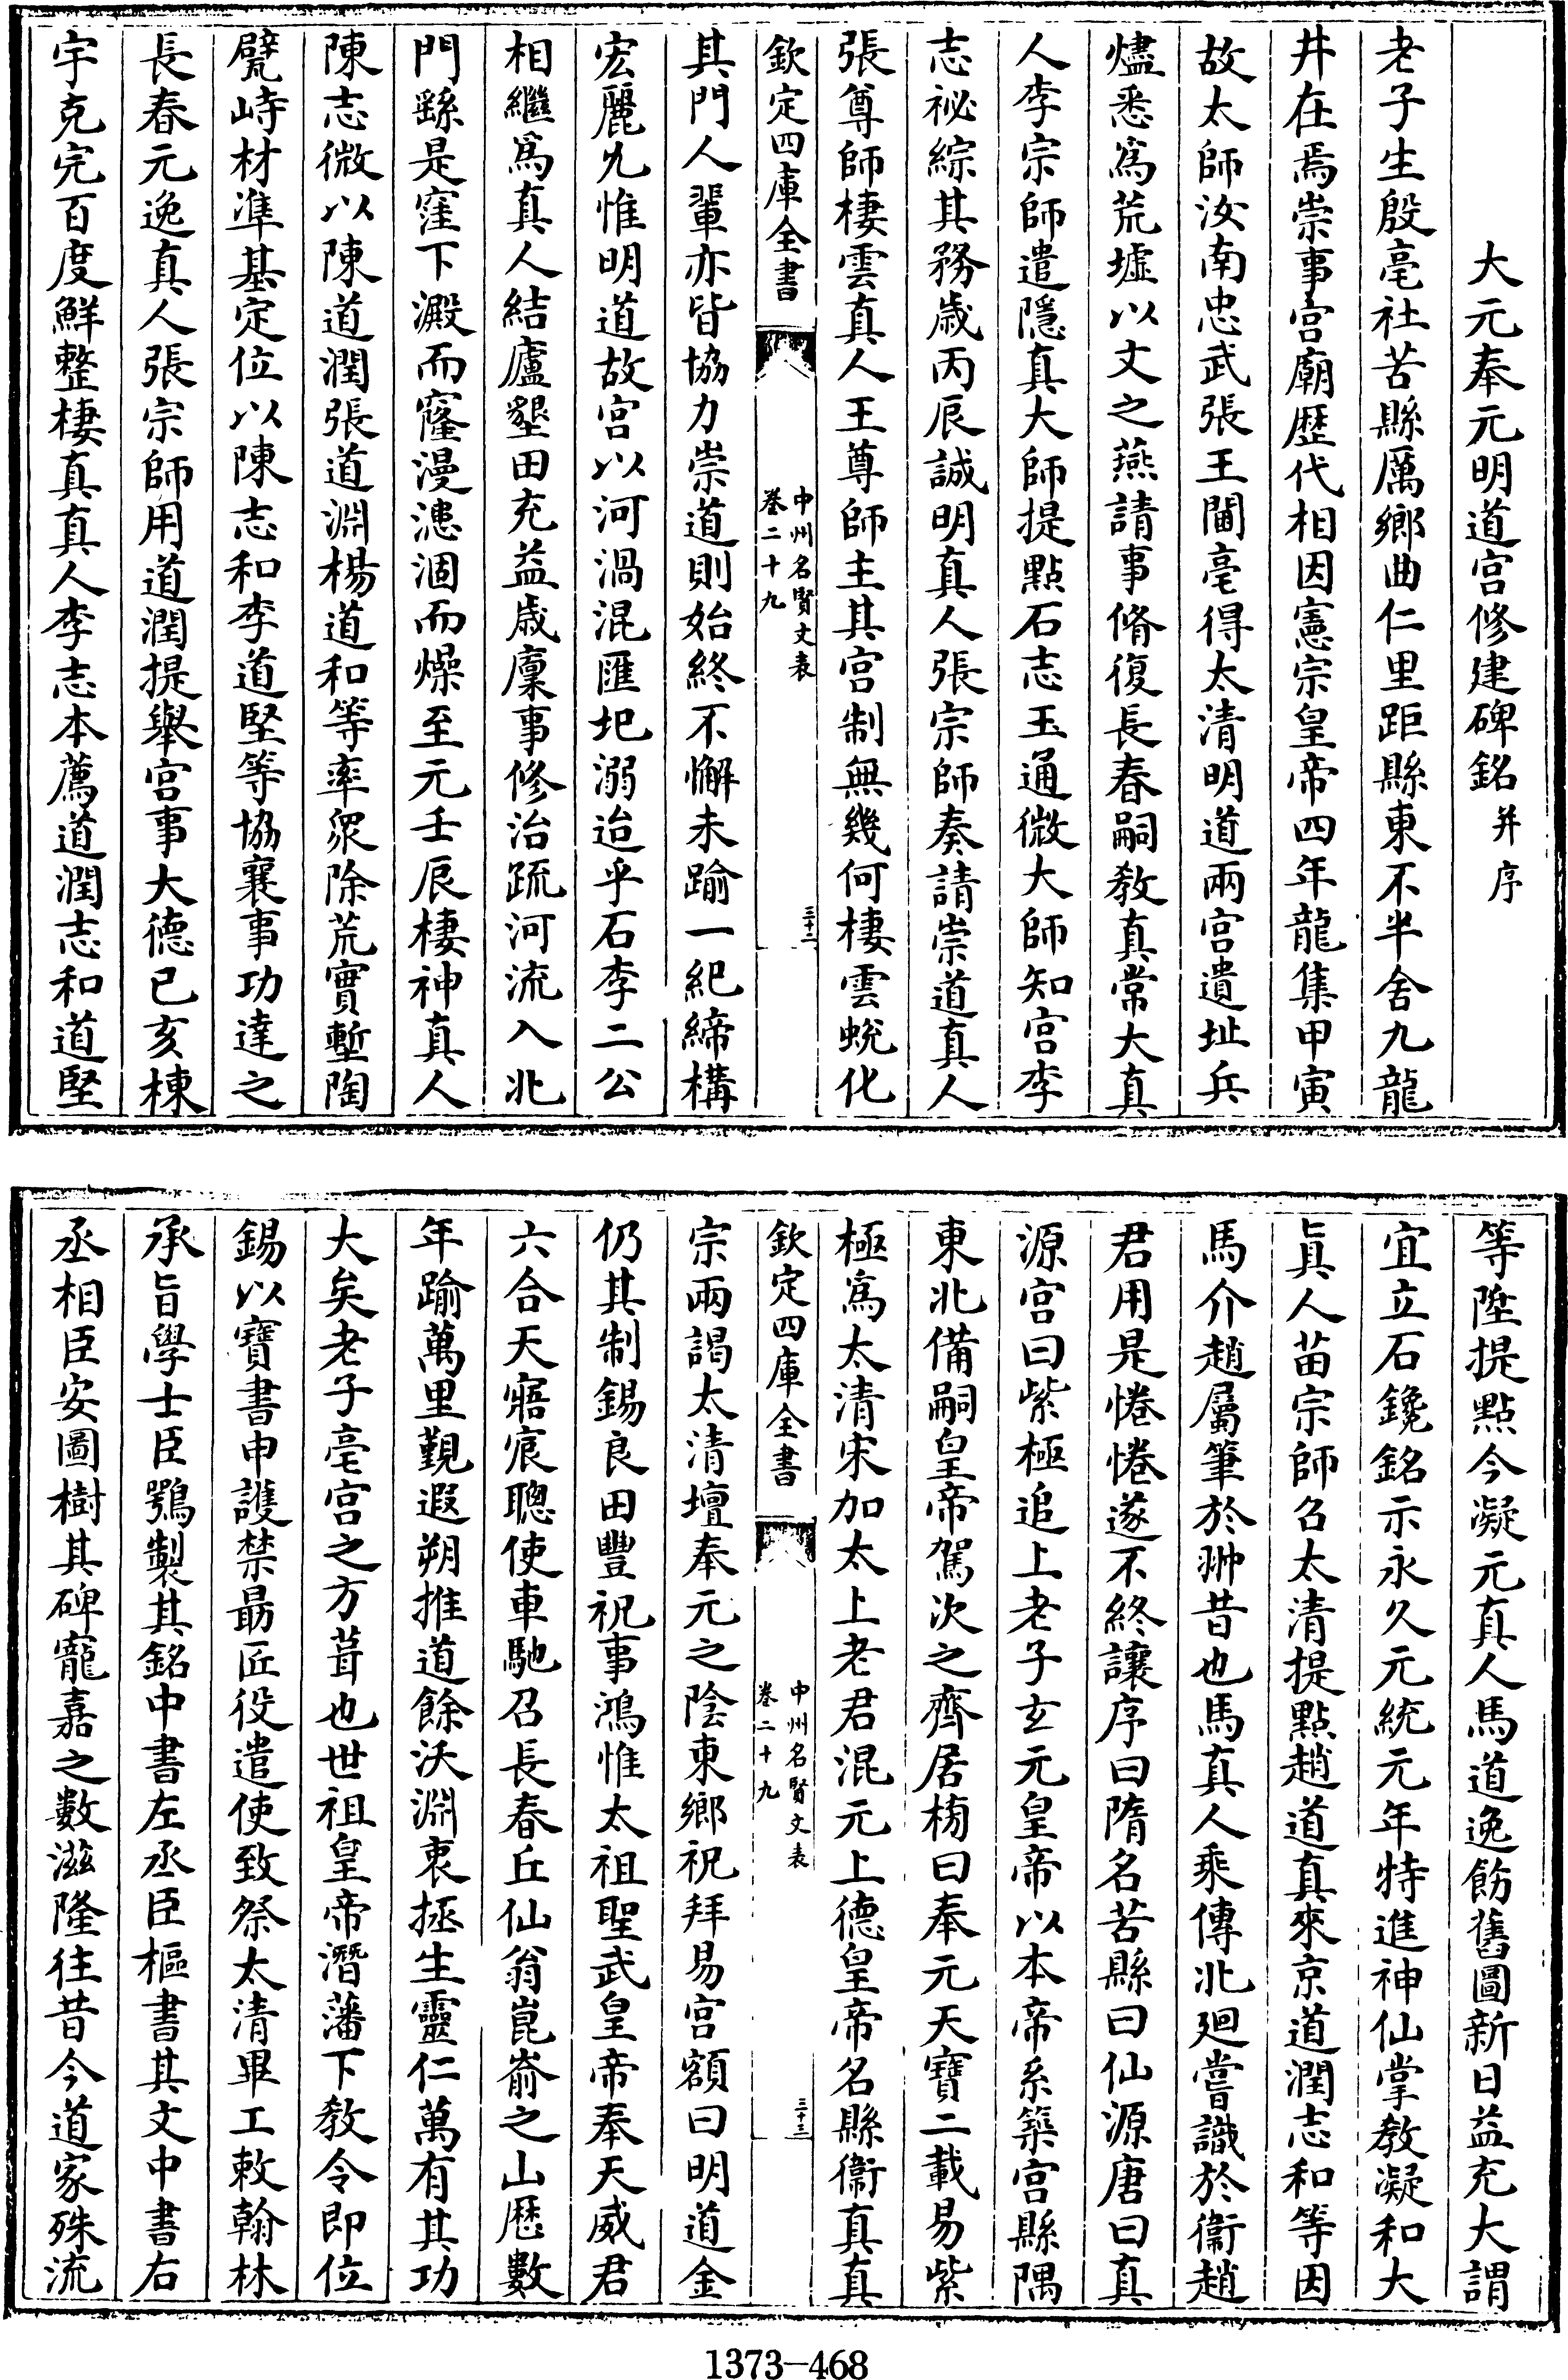 大元奉元明道宫修建碑銘并序
老子生殷亳社苦縣厲鄉曲仁里距縣東不半舍九龍
井在焉崇事宫廟歴代相因憲宗皇帝四年龍集甲寅
故太師汝南忠武張王閫亳得太清明道兩宫遺址兵
燼悉爲荒墟以文之燕請事脩復長春嗣教真常大真
人李宗師遣隱真大師提點石志玉通微大師知宫李
志祕綜其務歲丙辰誠明真人張宗師奏請崇道真人
張尊師棲雲真人王尊師主其宫制無幾何棲雲蛻化
欽定四庫全書
中州名賢文表
卷二十九
三十二
其門人輩亦皆協力崇道則始終不懈未踰一紀締構
宏麗尤惟明道故宫以河渦混匯圯溺迨乎石李二公
相繼爲真人結廬墾田充益歲廩事修治疏河流入北
門繇是窪下澱而窿漫漶涸而燥至元壬辰棲神真人
陳志微以陳道潤張道淵楊道和等率衆除荒實塹陶
甓峙材準基定位以陳志和李道堅等協襄事功達之
長春元逸真人張宗師用道潤提舉宫事大德已亥棟
宇克完百度鮮整棲真真人李志本薦道潤志和道堅
等陞提點今凝元真人馬道逸飭舊圖新日益充大謂
宜立石鑱銘示永久元統元年特進神仙掌教凝和大
眞人苗宗師名太清提點趙道真來京道潤志和等因
馬介趙屬筆於翀昔也馬真人乘傳北廻嘗識於衞趙
君用是惓惓遂不終讓序曰隋名苦縣曰仙源唐曰真
源宫曰紫極追上老子玄元皇帝以本帝系築宫縣隅
東北備嗣皇帝駕次之齊居榜曰奉元天寶二載易紫
極爲太清宋加太上老君混元上德皇帝名縣衞真真
欽定四庫全書
中州名賢文表
卷二十九
三十三
宗兩謁太清壇奉元之陰東鄉祝拜易宫額曰明道金
仍其制錫良田豐祝事鴻惟太祖聖武皇帝奉天威君
六合天寤宸聰使車馳召長春丘仙翁崑崳之山歷數
年踰萬里覲遐朔推道餘沃淵衷拯生靈仁萬有其功
大矣老子亳宫之方葺也世祖皇帝潛藩下教令即位
錫以寶書申護禁最匠役遣使致祭太清畢工敕翰林
承旨學士臣鶚製其銘中書左丞臣樞書其文中書右
丞相臣安圖樹其碑寵嘉之數滋隆往昔今道家殊流
1373-468